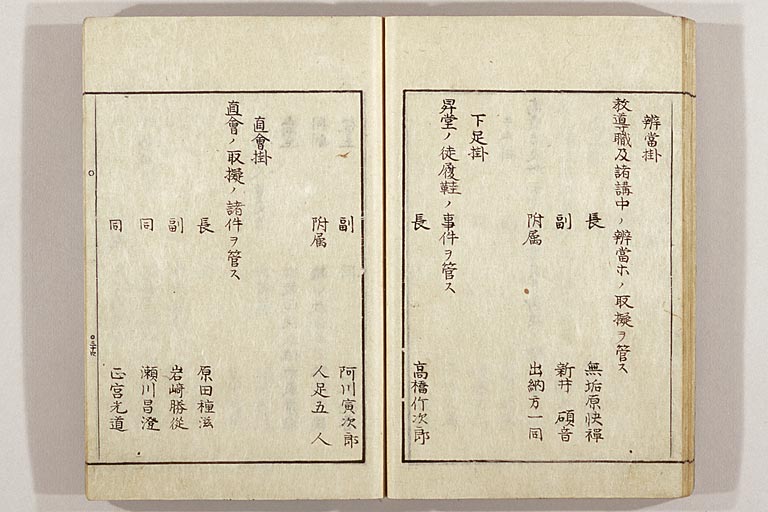 辨當掛
教導職及諸講中ノ辨當ホノ取擬ヲ管ス
長 無垢原快禪
副 新井碩音
附属 出納方一同
下足掛
昇堂ノ徒履鞋ノ事件ヲ管ス
長 高橋竹次郎
副 阿川寅次郎
附属 人足五人
直會掛
直會ノ取擬ノ諸件ヲ管ス
長 原田種滋
副 岩﨑勝從
同 瀬川昌澄
同 正宮光道